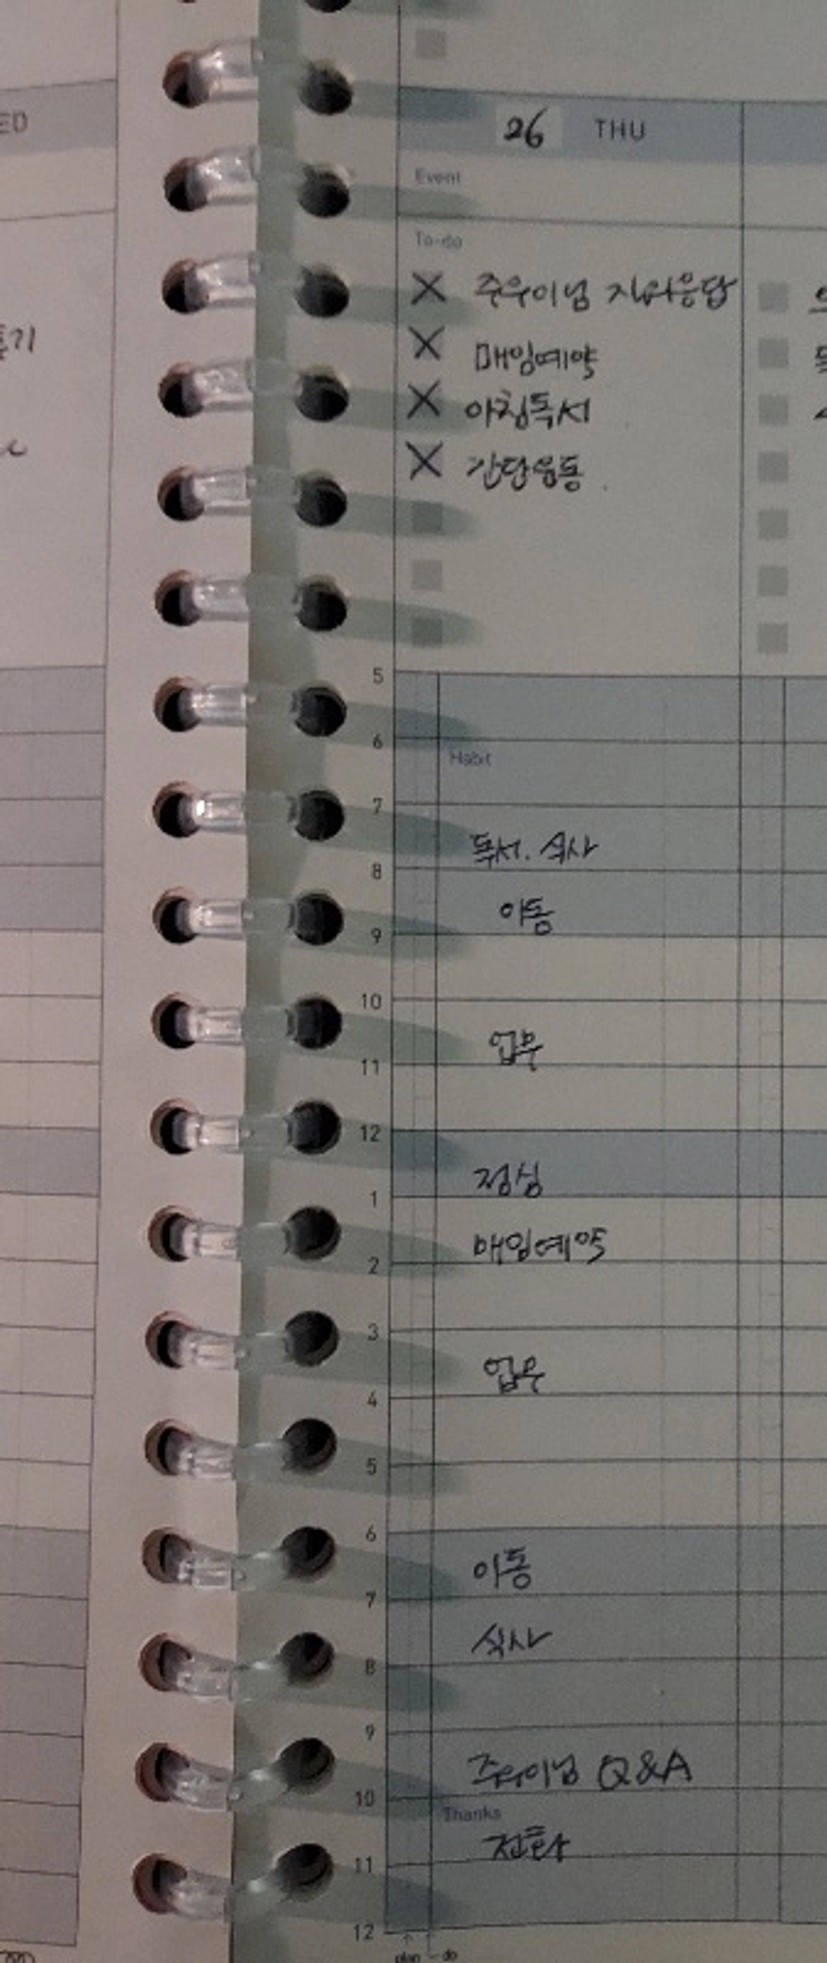 ED
26 THU
Event
To-do
주우이님 질의응답
매임예약
아침독서
간단운동
5
6
Habit
7
독서. 식사
8
이동
9
10
업무
11
12
점심
1
매임예약
2
3
업무
4
5
6
이동
7
식사
8
9
주우이님 Q&A
10
Thanks
11
12
plan
do